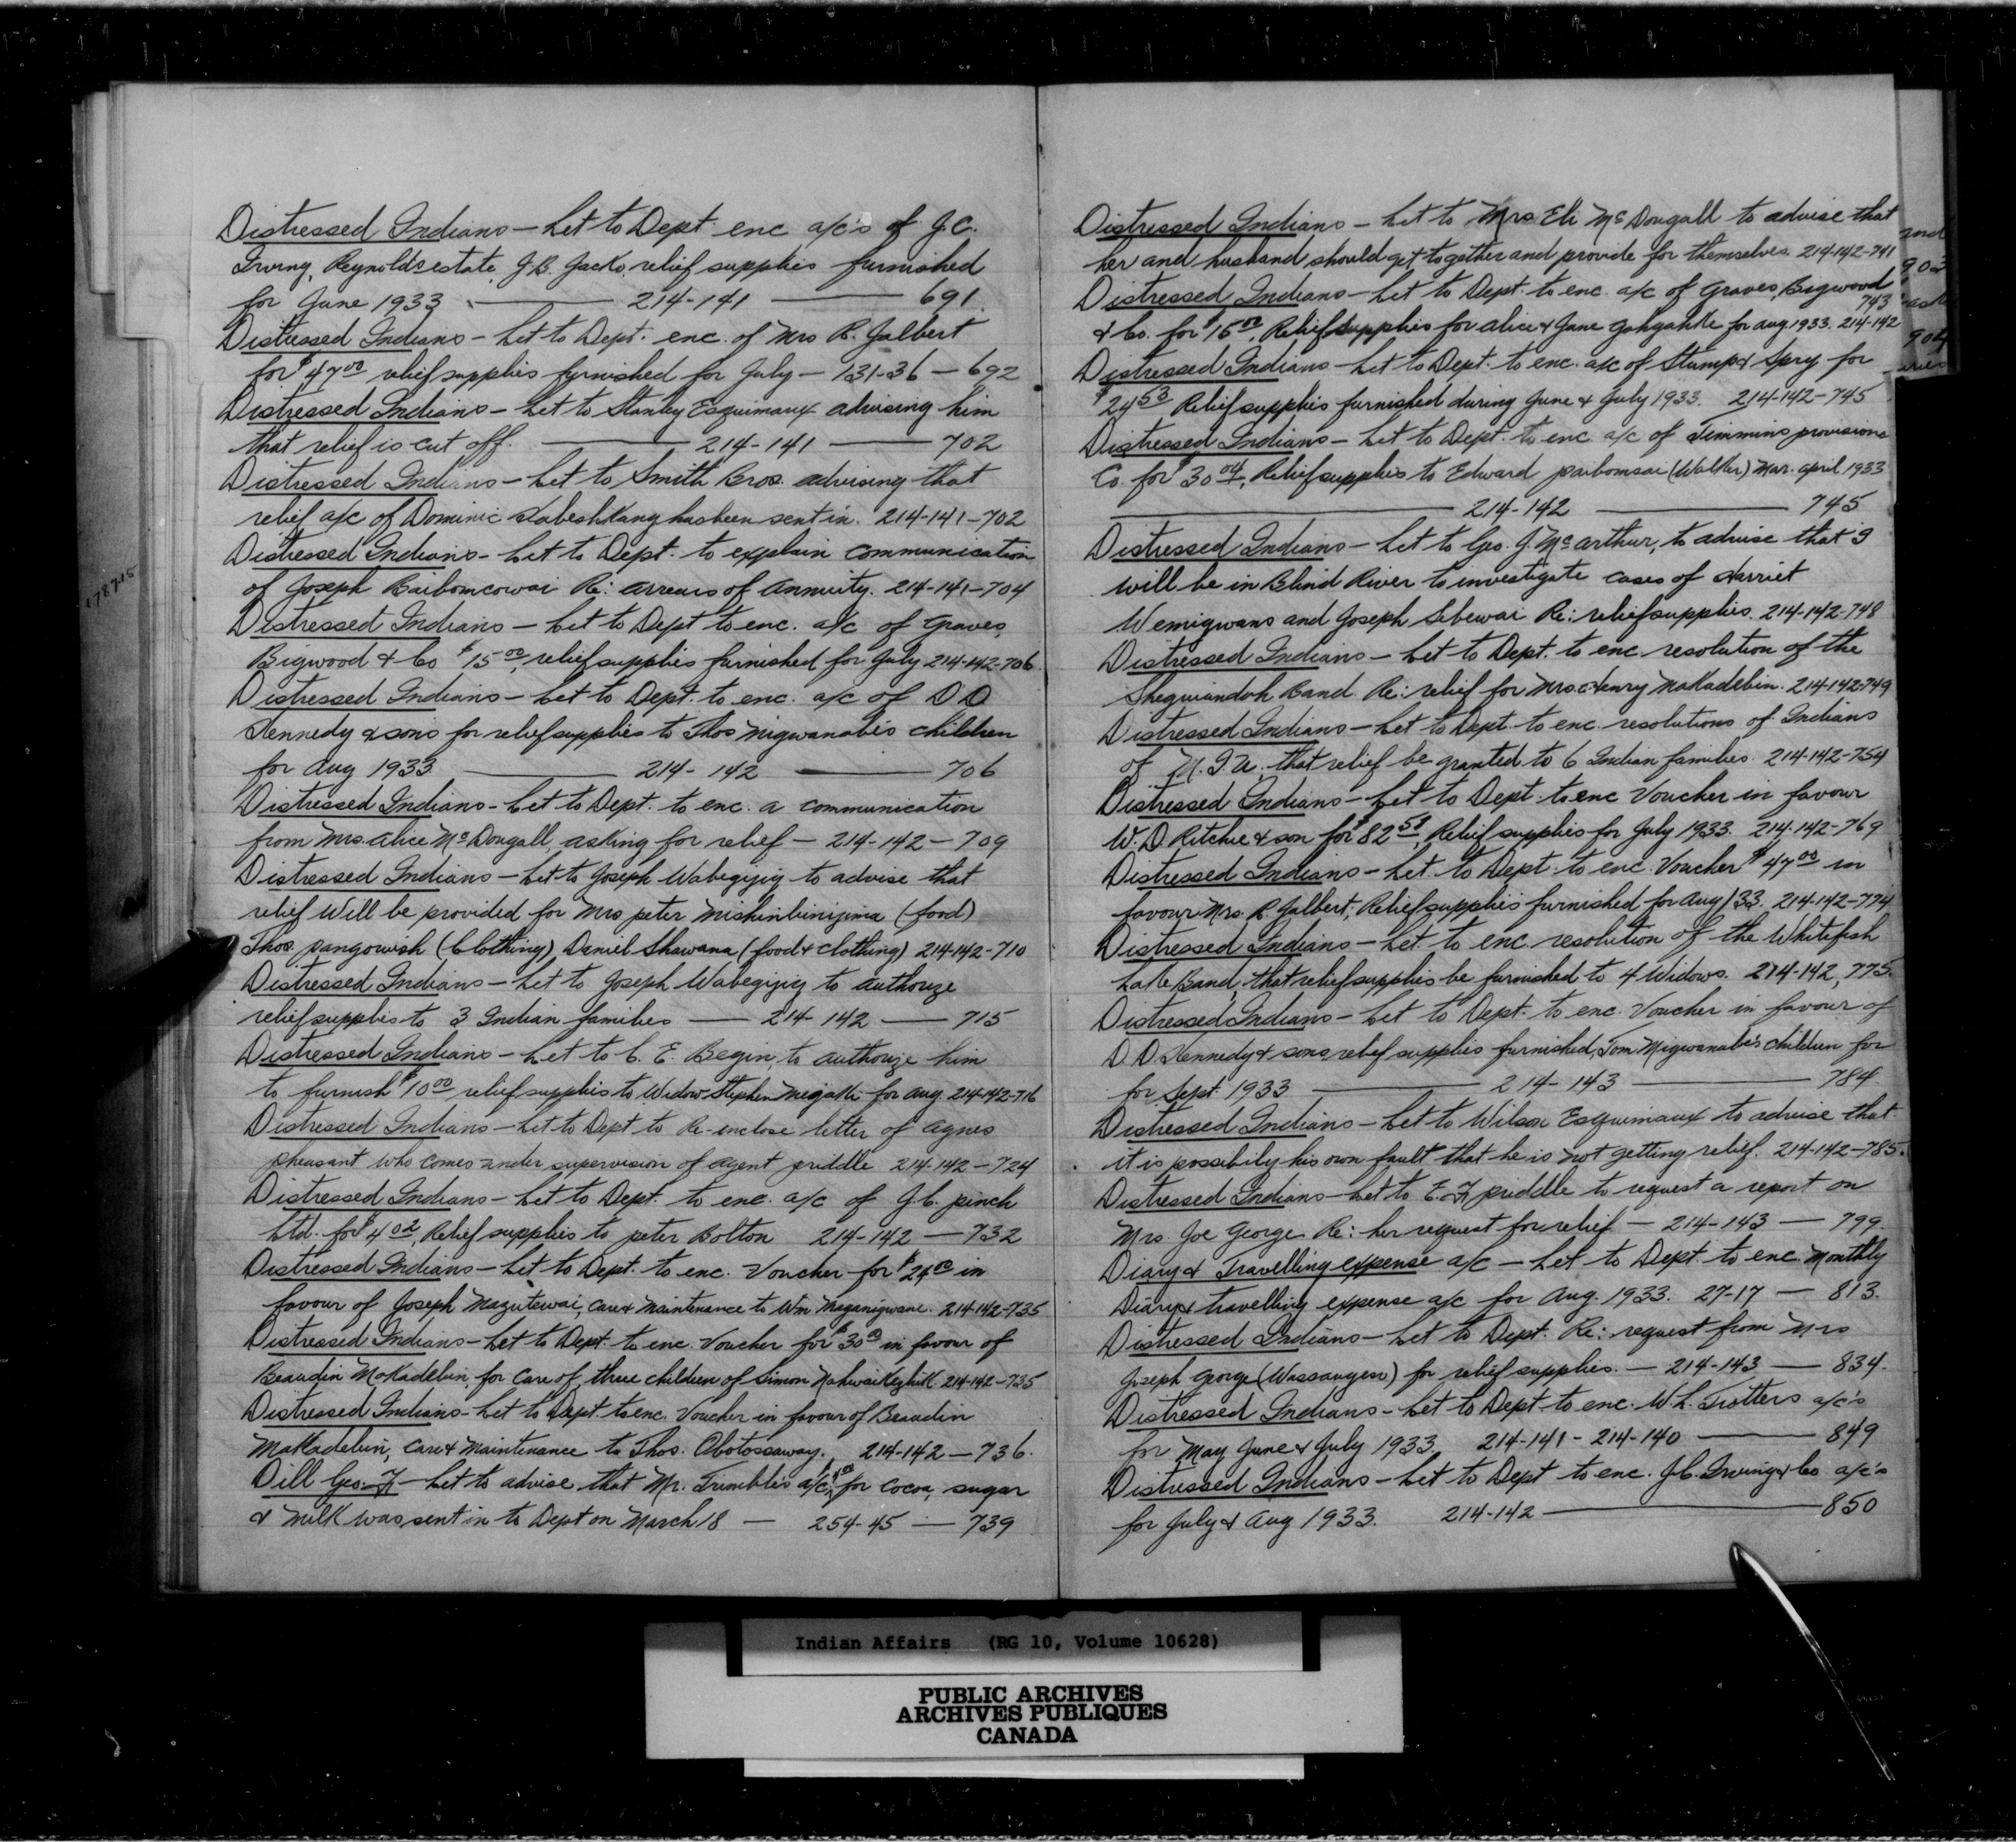 Distressed Indians — Let to Dept enc a/c's of J.C.
Irving, Reynolds estate, J.B. Jacko, relief supplies furnished
for June 1933 — 214-141 — 691.
Distressed Indians - Let to Dept. enc. of Mrs R. Jalbert
for $47.00 relief supplies furnished for July - 131-36 - 692
Distressed Indians - Let to Stanley Esquimaux advising him
that relief is cut off. — 214-141 — 702
Distressed Indians - Let to Smith Bros. advising that
relief a/c of Dominic Kabeshkang has been sent in. 214-141-702
Distressed Indians - Let to Dept. to explain communication
of Joseph Baibomcowai Re: arrears of annuity. 214-141-704
Distressed Indians - Let to Dept to enc. a/c of Graves,
Bigwood & Co $15.00, relief supplies furnished for July 214-142-706
Distressed Indians - Let to Dept. to enc. a/c of D D
Kennedy & sons for relief supplies to Thos Migwanabi's children
for Aug 1933 — 214-142 — 706
Distressed Indians - Let to Dept. to enc. a communication
from Mrs. Alice McDougall, asking for relief - 214-142 - 709
Distressed Indians - Let to Joseph Wabegijig to advise that
relief Will be provided for Mrs peter (food)
Thos. pangowish (Clothing), Daniel Shawana (food & clothing) 214-142-710
Distressed Indians - Let to Joseph Wabegijig to authorize
relief supplies to 3 Indian families — 214-142 — 715
Distressed Indians - Let to C. E. Begin, to authorize him
to furnish $10.00 relief supplies to Widow Stephen for Aug. 214-142-716
Distressed Indians - Let to Dept to Re-enclose letter of Agnes
pheasant who comes under supervision of Agent priddle 214-142-724
Distressed Indians - Let to Dept. to enc. a/c of J.C. pinch
Ltd. for $4.02, Relief supplies to peter Bolton 214-142 - 732
Distressed Indians - Let to Dept. to enc. Voucher for $24.00 in
favour of Joseph Nazutewai, care & maintenance to Wm Maganigwane. 214-142-735
Distressed Indians - Let to Dept. to enc. Voucher for $30.00 in favour of
Beaudin Makadebin for care of three children of Simon Nahwaikezhik 214-142-735
Distressed Indians - Let to Dept. to enc. Voucher in favour of Beaudin
Makadebin, care & maintenance to Thos. Obotossaway. 214-142 - 736.
Dill Geo. F - Let to advise that Mr. Trimble's a/c, for cocoa, sugar
& milk was sent in to Dept on March 18 - 254-45 - 739
Distressed Indians - Let to Mrs Eli McDougall to advise that
her and husband should get together and provide for themselves. 214-142-741
Distressed Indians - Let to Dept. to enc. a/c of Graves, Bigwood
743
& Co. for $15.00, Relief supplies for Alice & Jane Gahgahke for Aug 1933. 214-142
Distressed Indians - Let to Dept. to enc. a/c of Stump & Spry for
$24.53 Relief supplies furnished during June & July 1933. 214-142-745
Distressed Indians - Let to Dept. to enc. a/c of Timmins provisions
Co. for $30.04, Relief supplies to Edward paibomsai (Walker) Mar. April 1933
— 214-142 — 745
Distressed Indians - Let to Geo. J. McArthur, to advise that I
will be in Blind River to investigate cases of Harriet
Wemigwans and Joseph Sebewai Re: relief supplies. 214-142-748
Distressed Indians - Let to Dept. to enc resolution of the
Sheguiandah Band. Re: relief for Mrs. Henry Makadebin. 214-142-749
Distressed Indians - Let to Dept. to enc. resolutions of Indians
of M.I.U. that relief be granted to 6 Indian families. 214-142-754
Distressed Indians - Let to Dept. to enc Voucher in favour
W. D. Ritchie & son for $82.51, Relief supplies for July 1933. 214-142-769
Distressed Indians - Let to Dept. to enc. Voucher $47.00 in
favour Mrs. R. Jalbert, Relief supplies furnished for Aug/33. 214-142-774
Distressed Indians - Let. to enc. resolution of the Whitefish
Lake Band, that relief supplies be furnished to 4 Widows. 214-142, 775.
Distressed Indians - Let to Dept. to enc. Voucher in favour of
D D Kennedy & sons, relief supplies furnished, Tom Migwanabi's children for
for Sept. 1933 — 214-143 — 784.
Distressed Indians - Let to Wilson Esquimaux to advise that
it is possibily his own fault that he is not getting relief. 214-142-785.
Distressed Indians - Let to E. F. priddle to request a report on
Mrs. Joe George Re: her request for relief - 214-143 - 799.
Diary & Travelling expense a/c - Let to Dept. to enc. Monthly
Diary & travelling expense a/c for Aug. 1933. 27-17 - 813.
Distressed Indians - Let to Dept. Re: request from Mrs
Joseph George (Wassaugen) for relief supplies. - 214-143 - 834.
Distressed Indians - Let to Dept to enc. W. L. Trotters a/c's
for May June & July 1933 214-141 - 214-140 — 849
Distressed Indians - Let to Dept to enc. J.C. Irving & Co a/c's
for July & Aug 1933. 214-142 — 850
Indian Affairs (RG 10, Volume 10628)
PUBLIC ARCHIVES
ARCHIVES PUBLIQUES
CANADA